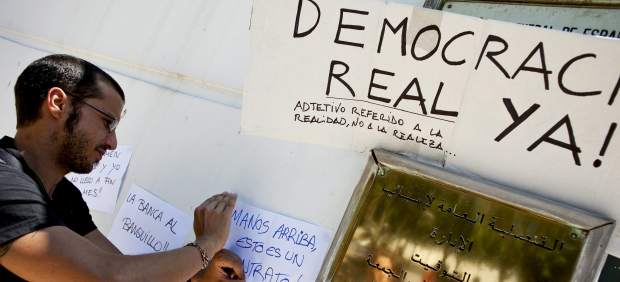 DEMOCRACI
REAL YA!
ADTETIVO REFERIDO A LA
REALIDAD, NO A LA REALEZA...
Y YO
MES!!
LA BANCA AL
BANQUILLO!!
MANOS ARRIBA,
ESTO ES UN
CONTRATO!
DE ESPAÑ
القنصلية العامة لاسبانيا
الإدارة
التوقيت
الجمعة